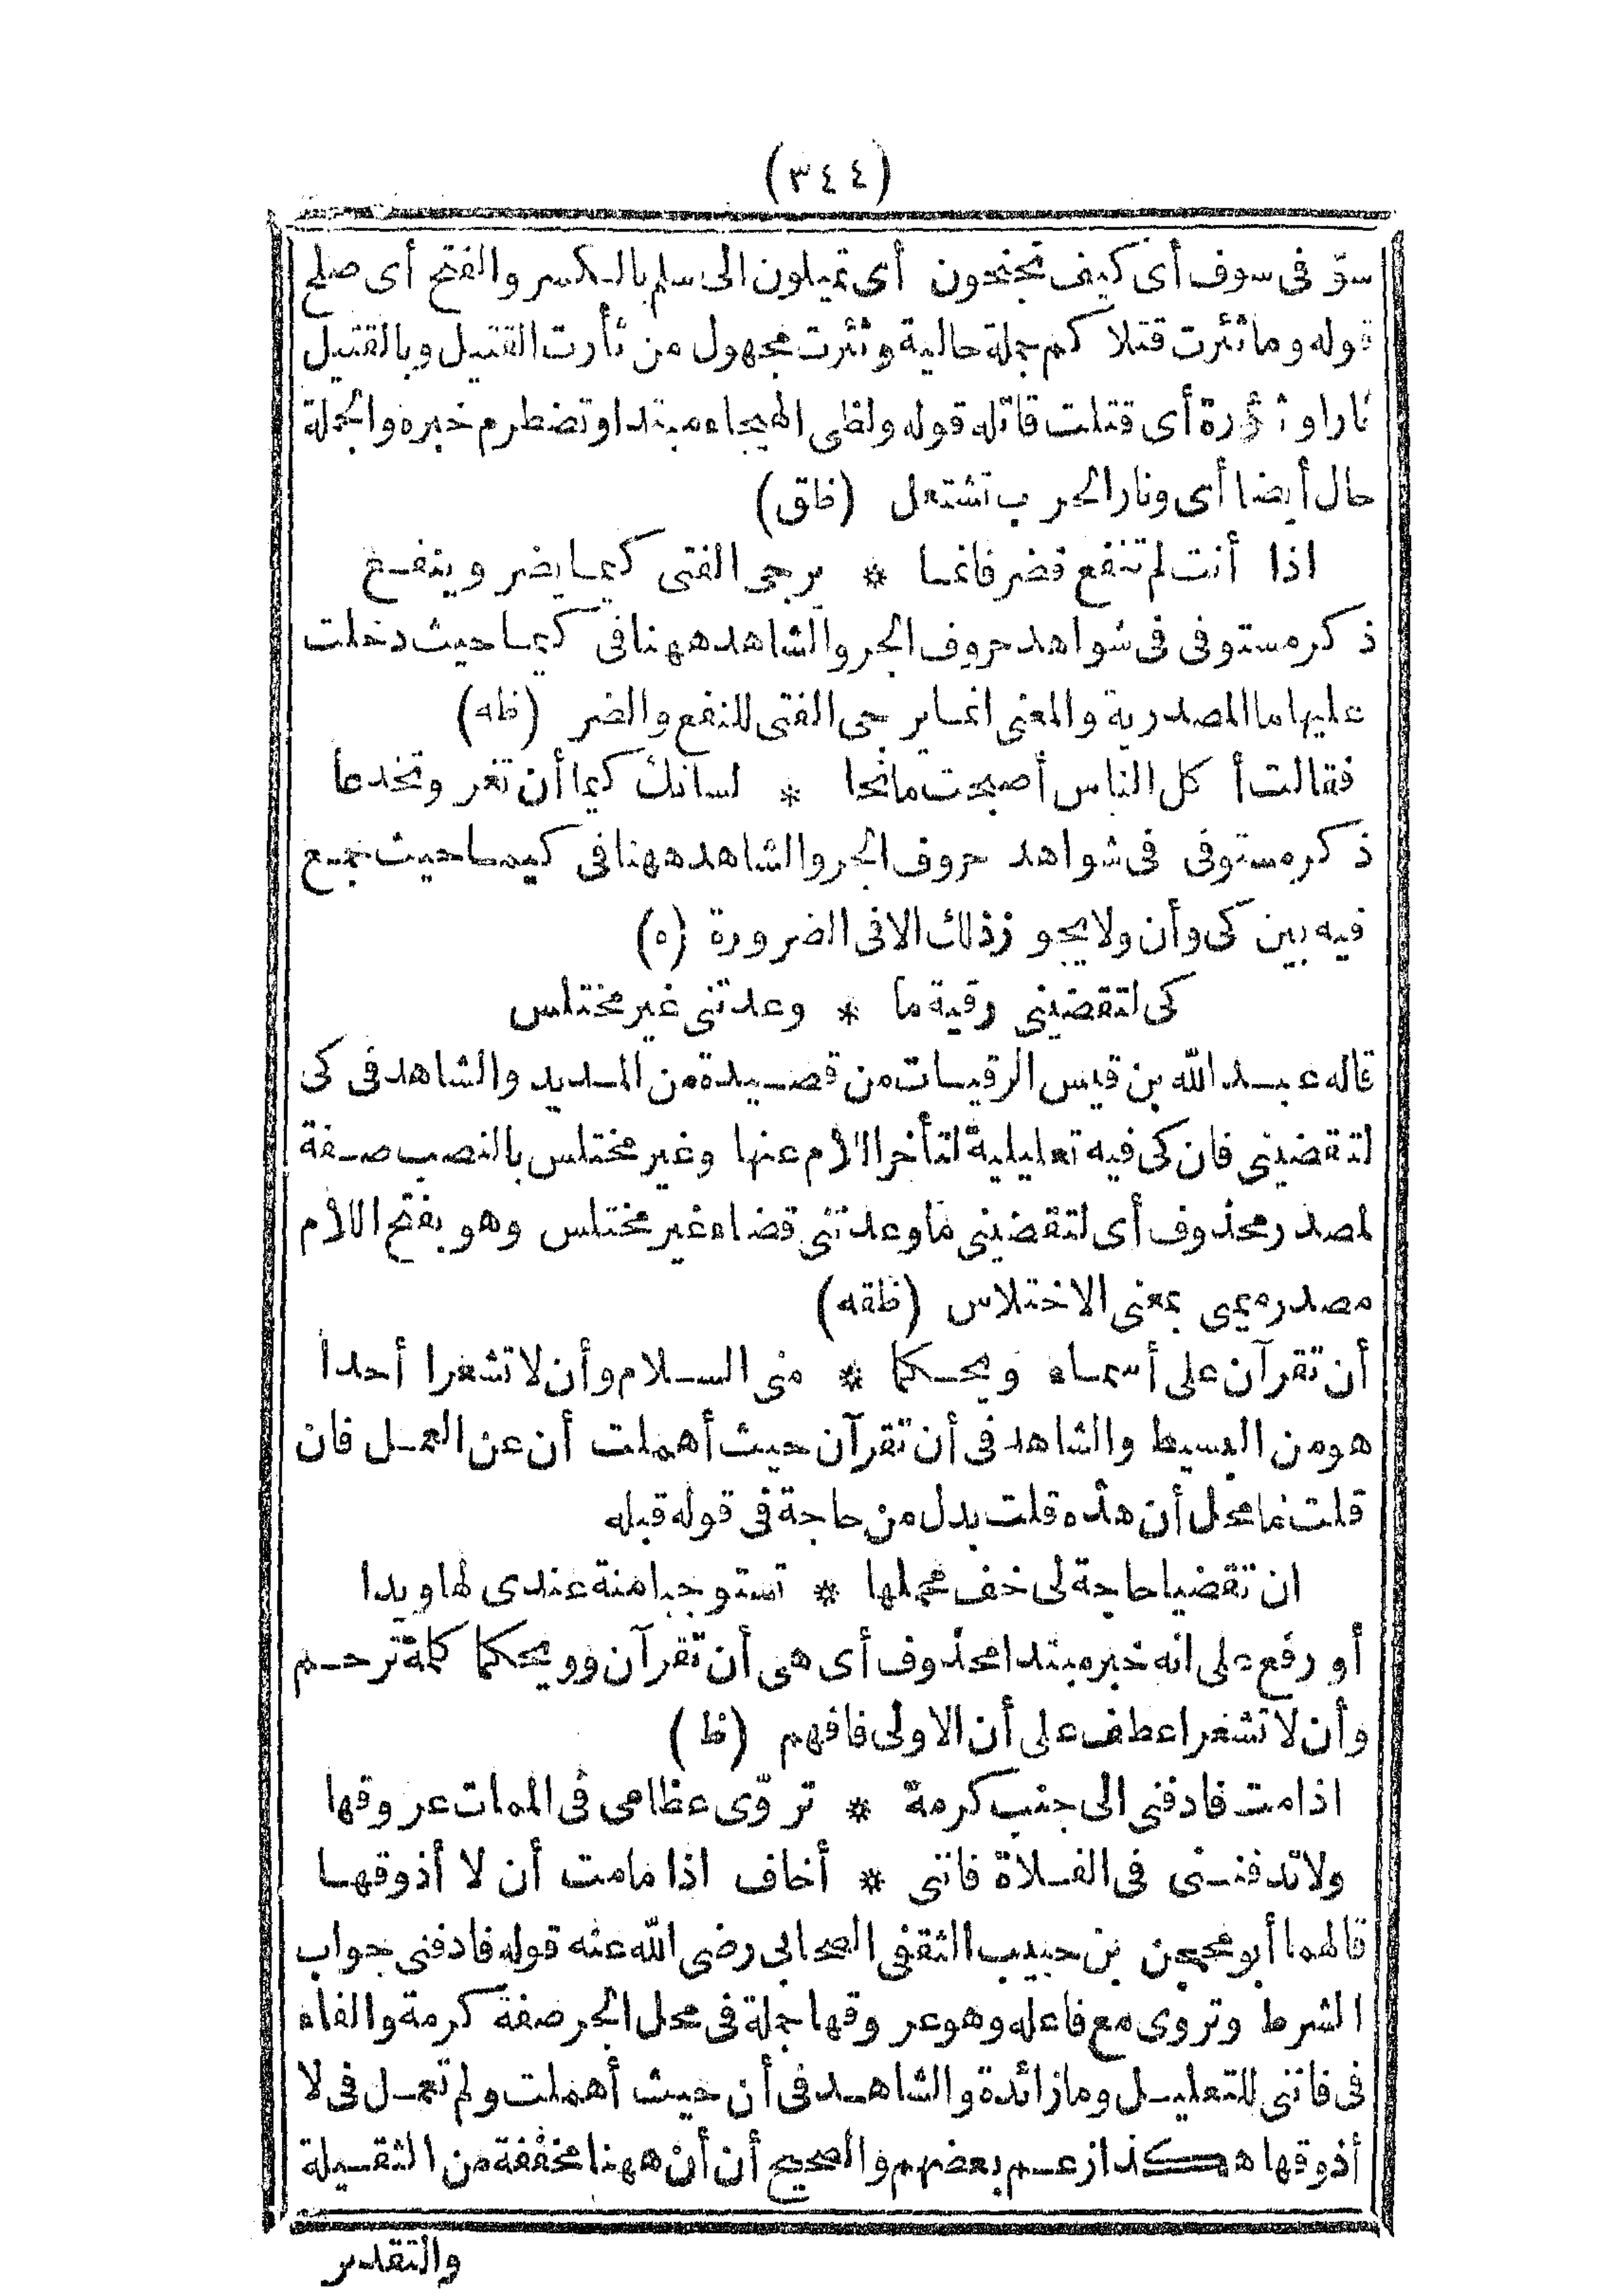 (٣٤٤)
سوّ فى سوف أى كيف تجنحون أى تميلون الى سلم بالكسر والفتح أى صلح
قوله وما ثئرت قتلاكم جملة حالية وثئرت مجهول من ثأرت القتيل وبالقتيل
ثارا وثؤرة أى قتلت قاتله قوله ولظى الهيجاء مبتدا وتضطرم خبره والجملة
حال أيضا أى ونار الحرب تشتعل (ظق)
اذا أنت لم تنفع فضر فانما * يرجى الفتى كيما يضر وينفع
ذكر مستوفى فى شواهد حروف الجر والشاهد ههنا فى كيما حيث دخلت
عليها ما المصدرية والمعنى انما يرجى الفتى للنفع والضر (ظه)
فقالت أكل الناس أصبحت مانحا * لسانك كيما أن تغر وتخدعا
ذكر مستوفى فى شواهد حروف الجر والشاهد ههنا فى كيما حيث جمع
فيه بين كى وأن ولا يجوز ذلك الا فى الضرورة (ه)
كى لتقضينى رقية ما * وعدتنى غير مختلس
قاله عبد الله بن قيس الرقيات من قصيدة من المديد والشاهد فى كى
لتقضينى فان كى فيه تعليلية لتأخر اللام عنها وغير مختلس بالنصب صفة
لمصدر محذوف أى لتقضينى ما وعدتنى قضاء غير مختلس وهو بفتح اللام
مصدر ميمى بمعنى الاختلاس (ظقه)
أن تقرآن على أسماء ويحكما * منى السلام وأن لا تشعرا أحدا
هو من البسيط والشاهد فى أن تقرآن حيث أهملت أن عن العمل فان
قلت فما محل أن هذه قلت بدل من حاجة فى قوله قبله
ان تقضيا حاجة لى خف محملها * تستوجبا منة عندى لها ويدا
أو رفع على انه خبر مبتدا محذوف أى هى أن تقرآن وويحكما كلمة ترحم
وأن لا تشعرا عطف على أن الاولى فافهم (ظ)
اذا مت فادفنى الى جنب كرمة * تروّى عظامى فى الممات عروقها
ولا تدفننى فى الفلاة فاننى * أخاف اذا ما مت أن لا أذوقها
قالهما أبو محجن بن حبيب الثقفى الصحابى رضى الله عنه قوله فادفنى جواب
الشرط وتروى مع فاعله وهو عروقها جملة فى محل الجر صفة كرمة والفاء
فى فاننى للتعليل وما زائدة والشاهد فى أن حيث أهملت ولم تعمل فى لا
أذوقها هكذا زعم بعضهم والصحيح أن أن ههنا مخففة من الثقيلة
والتقدير